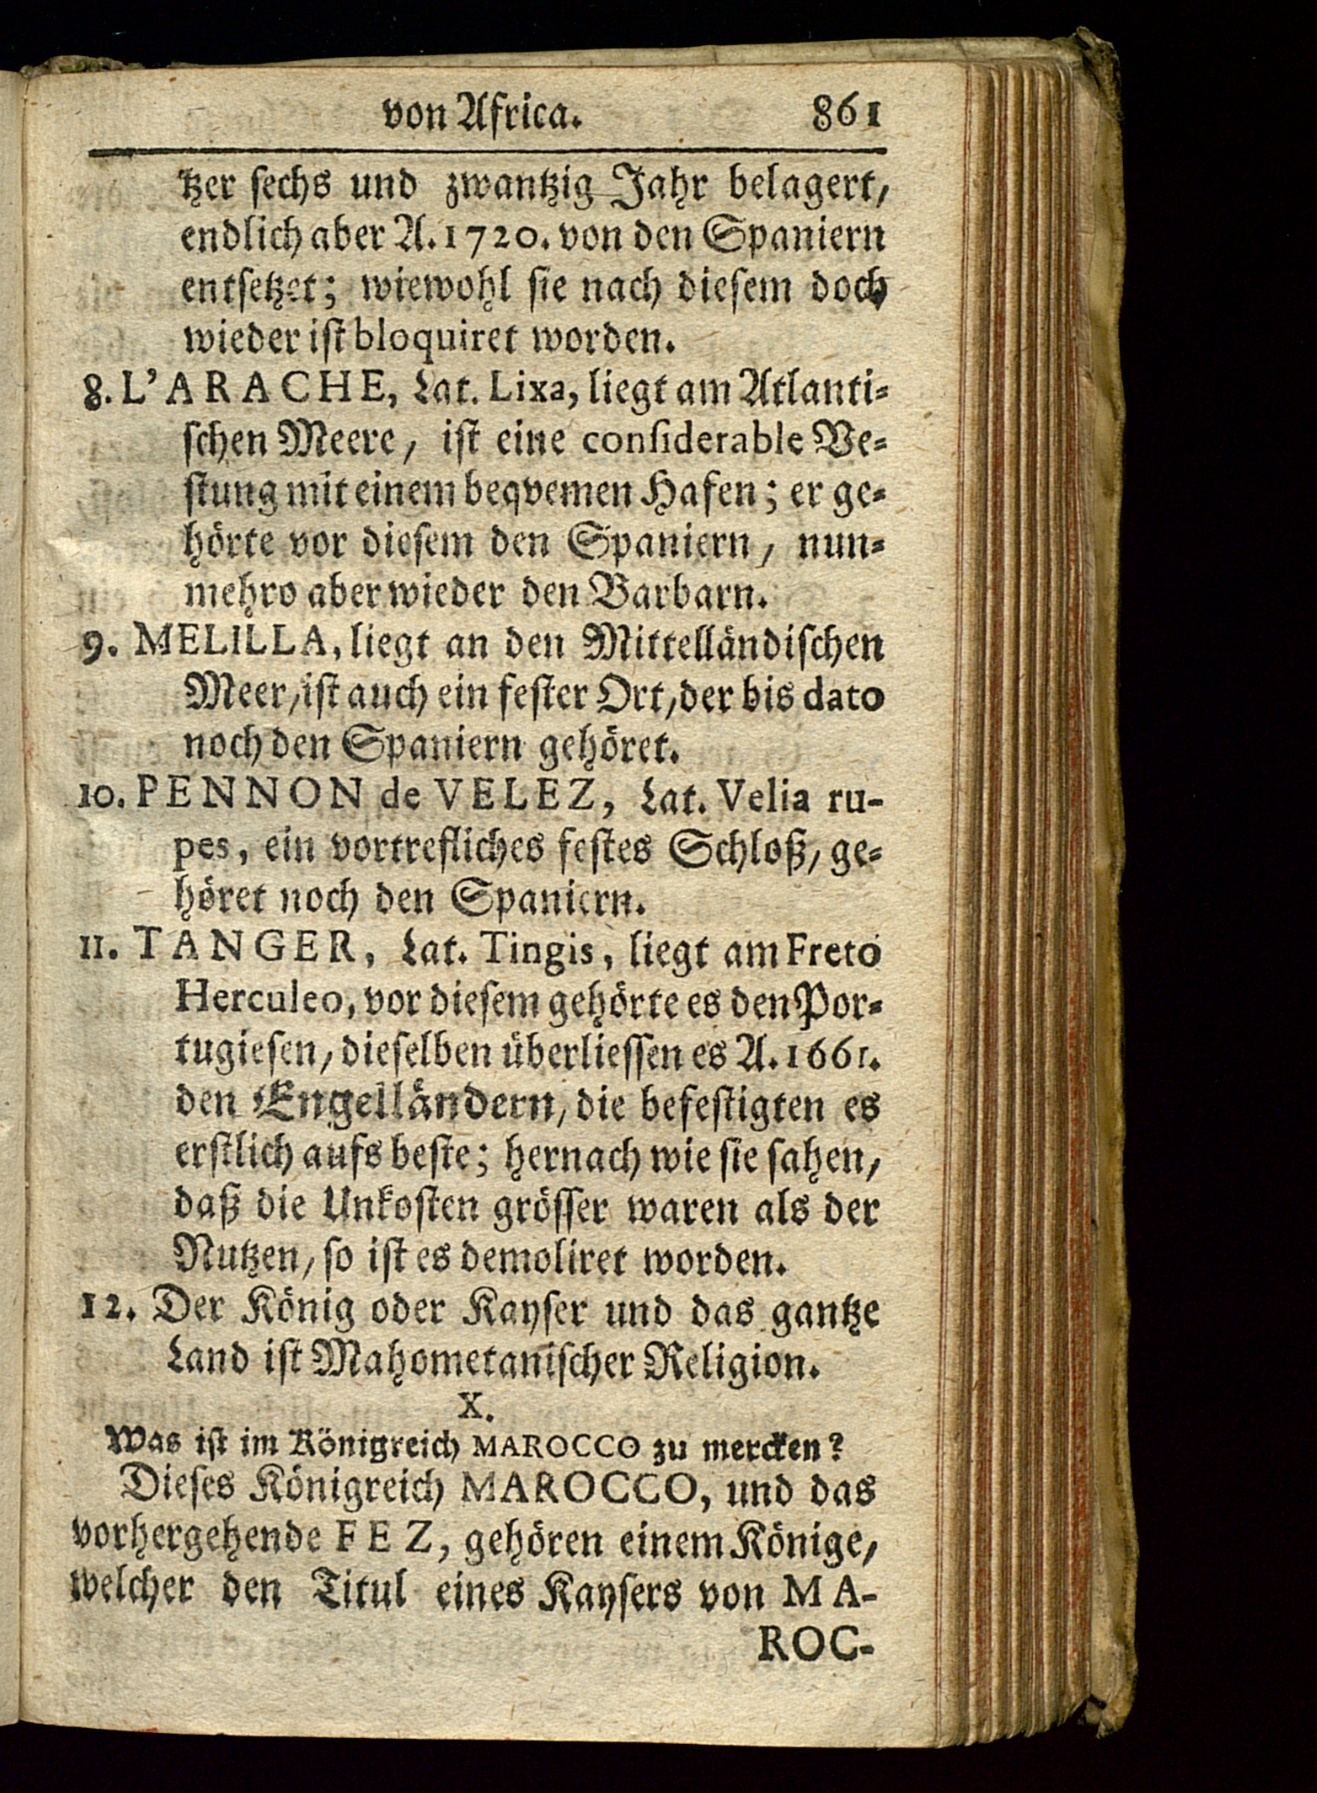 von Africa. 861
tzer sechs und zwantzig Jahr belagert,
endlich aber A. 1720. von den Spaniern
entsetzet; wiewohl sie nach diesem doch
wieder ist bloquiret worden.
8. L'ARACHE, Lat. Lixa, liegt am Atlanti-
schen Meere, ist eine considerable Ve-
stung mit einem beqvemen Hafen; er ge-
hörte vor diesem den Spaniern, nun-
mehro aber wieder den Barbarn.
9. MELILLA, liegt an den Mittelländischen
Meer, ist auch ein fester Ort, der bis dato
noch den Spaniern gehöret.
10. PENNON de VELEZ, Lat. Velia ru-
pes, ein vortrefliches festes Schloß, ge-
höret noch den Spaniern.
11. TANGER, Lat. Tingis, liegt am Freto
Herculeo, vor diesem gehörte es den Por-
tugiesen, dieselben überliessen es A. 1661.
den Engelländern, die befestigten es
erstlich aufs beste; hernach wie sie sahen,
daß die Unkosten grösser waren als der
Nutzen, so ist es demoliret worden.
12. Der König oder Kayser und das gantze
Land ist Mahometanischer Religion.
X.
Was ist im Königreich MAROCCO zu mercken?
Dieses Königreich MAROCCO, und das
vorhergehende FEZ, gehören einem Könige,
welcher den Titul eines Kaysers von MA-
ROC-